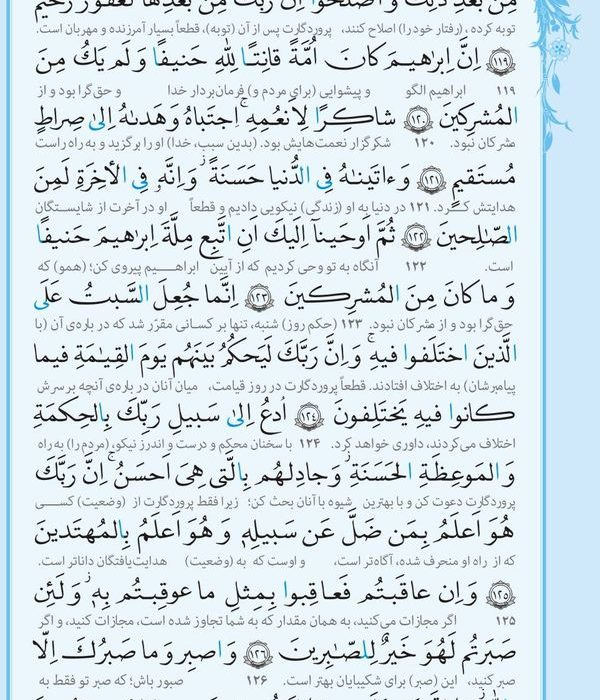 مِن بَعدِ ذٰلِكَ وَ اَصلَحوا اِنَّ رَبَّكَ مِن بَعدِها لَغَفورٌ رَحيمٌ
توبه کرده ، (رفتار خود را) اصلاح کنند، پروردگارت پس از آن (توبه)، قطعاً بسیار آمرزنده و مهربان است.
﴿١١٩﴾ اِنَّ اِبرٰهيمَ كانَ اُمَّةً قانِتًا لِلّٰهِ حَنيفًا وَ لَم يَكُ مِنَ
۱۱۹ ابراهیم الگو و پیشوایی (برای مردم و) فرمان‌بردار خدا و حق‌گرا بود و از
المُشرِكينَ ﴿١٢٠﴾ شاكِرًا لِاَنعُمِهِ ۚ اِجتَباهُ وَ هَدىٰهُ اِلىٰ صِراطٍ
مشرکان نبود. ۱۲۰ شکرگزار نعمت‌هایش بود. (بدین سبب، خدا) او را برگزید و به راه راست
مُستَقيمٍ ﴿١٢١﴾ وَ ءاتَينٰهُ فِى الدُّنيا حَسَنَةً ۖ وَ اِنَّهُ فِى الأخِرَةِ لَمِنَ
هدایتش کرد. ۱۲۱ در دنیا به او (زندگی) نیکویی دادیم و قطعاً او در آخرت از شایستگان
الصّٰلِحينَ ﴿١٢٢﴾ ثُمَّ اَوحَينا اِلَيكَ اَنِ اتَّبِع مِلَّةَ اِبرٰهيمَ حَنيفًا
است. ۱۲۲ آنگاه به تو وحی کردیم که از آیین ابراهیم پیروی کن؛ (همو) که
وَ ما كانَ مِنَ المُشرِكينَ ﴿١٢٣﴾ اِنَّما جُعِلَ السَّبتُ عَلَى
حق‌گرا بود و از مشرکان نبود. ۱۲۳ (حکم روز) شنبه، تنها بر کسانی مقرّر شد که در باره‌ی آن (با
الَّذينَ اختَلَفوا فيهِ ۚ وَ اِنَّ رَبَّكَ لَيَحكُمُ بَينَهُم يَومَ القِيٰمَةِ فيما
پیامبرشان) به اختلاف افتادند. قطعاً پروردگارت در روز قیامت، میان آنان در باره‌ی آنچه بر سرش
كانوا فيهِ يَختَلِفونَ ﴿١٢٤﴾ اُدعُ اِلىٰ سَبيلِ رَبِّكَ بِالحِكمَةِ
اختلاف می‌کردند، داوری خواهد کرد. ۱۲۴ با سخنان محکم و درست و اندرز نیکو، (مردم را) به راه
وَ المَوعِظَةِ الحَسَنَةِ ۖ وَ جادِلهُم بِالَّتى هِىَ اَحسَنُ ۚ اِنَّ رَبَّكَ
پروردگارت دعوت کن و با بهترین شیوه با آنان بحث کن؛ زیرا فقط پروردگارت از (وضعیت) کسی
هُوَ اَعلَمُ بِمَن ضَلَّ عَن سَبيلِهِ وَ هُوَ اَعلَمُ بِالمُهتَدينَ
که از راه او منحرف شده، آگاه‌تر است، و اوست که به (وضعیت) هدایت‌یافتگان داناتر است.
﴿١٢٥﴾ وَ اِن عاقَبتُم فَعاقِبوا بِمِثلِ ما عوقِبتُم بِهِ ۖ وَ لَئِن
۱۲۵ اگر مجازات می‌کنید، به همان مقدار که به شما تجاوز شده است، مجازات کنید، و اگر
صَبَرتُم لَهُوَ خَيرٌ لِلصّٰبِرينَ ﴿١٢٦﴾ وَ اصبِر وَ ما صَبرُكَ اِلّا
صبر کنید، این (صبر) برای شکیبایان بهتر است. ۱۲۶ صبور باش؛ که صبر تو فقط به